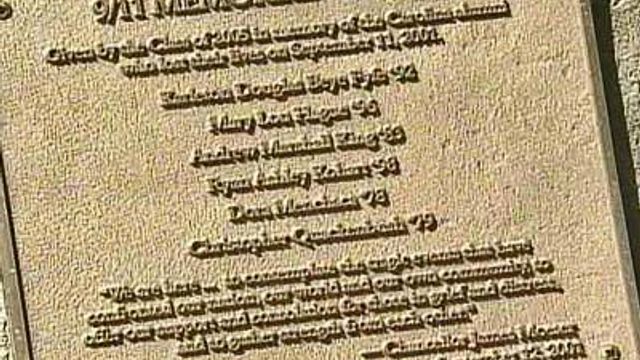 9/11 MEMORIAL
Given by the Class of 2005 in memory of the Carolina alumni
who lost their lives on September 11, 2001.
Karleton Douglas Beye Fyfe '92
Mary Lou Hague '96
Andrew Marshall King '83
Ryan Ashley Kohart '98
Dora Menchaca '78
Christopher Quackenbush '79
"We are here ... to contemplate the tragic events that have
confronted our nation, our world and our own community, to
offer our support and consolation for those in grief and distress,
and to gather strength from each other."
—Chancellor James Moeser
2001